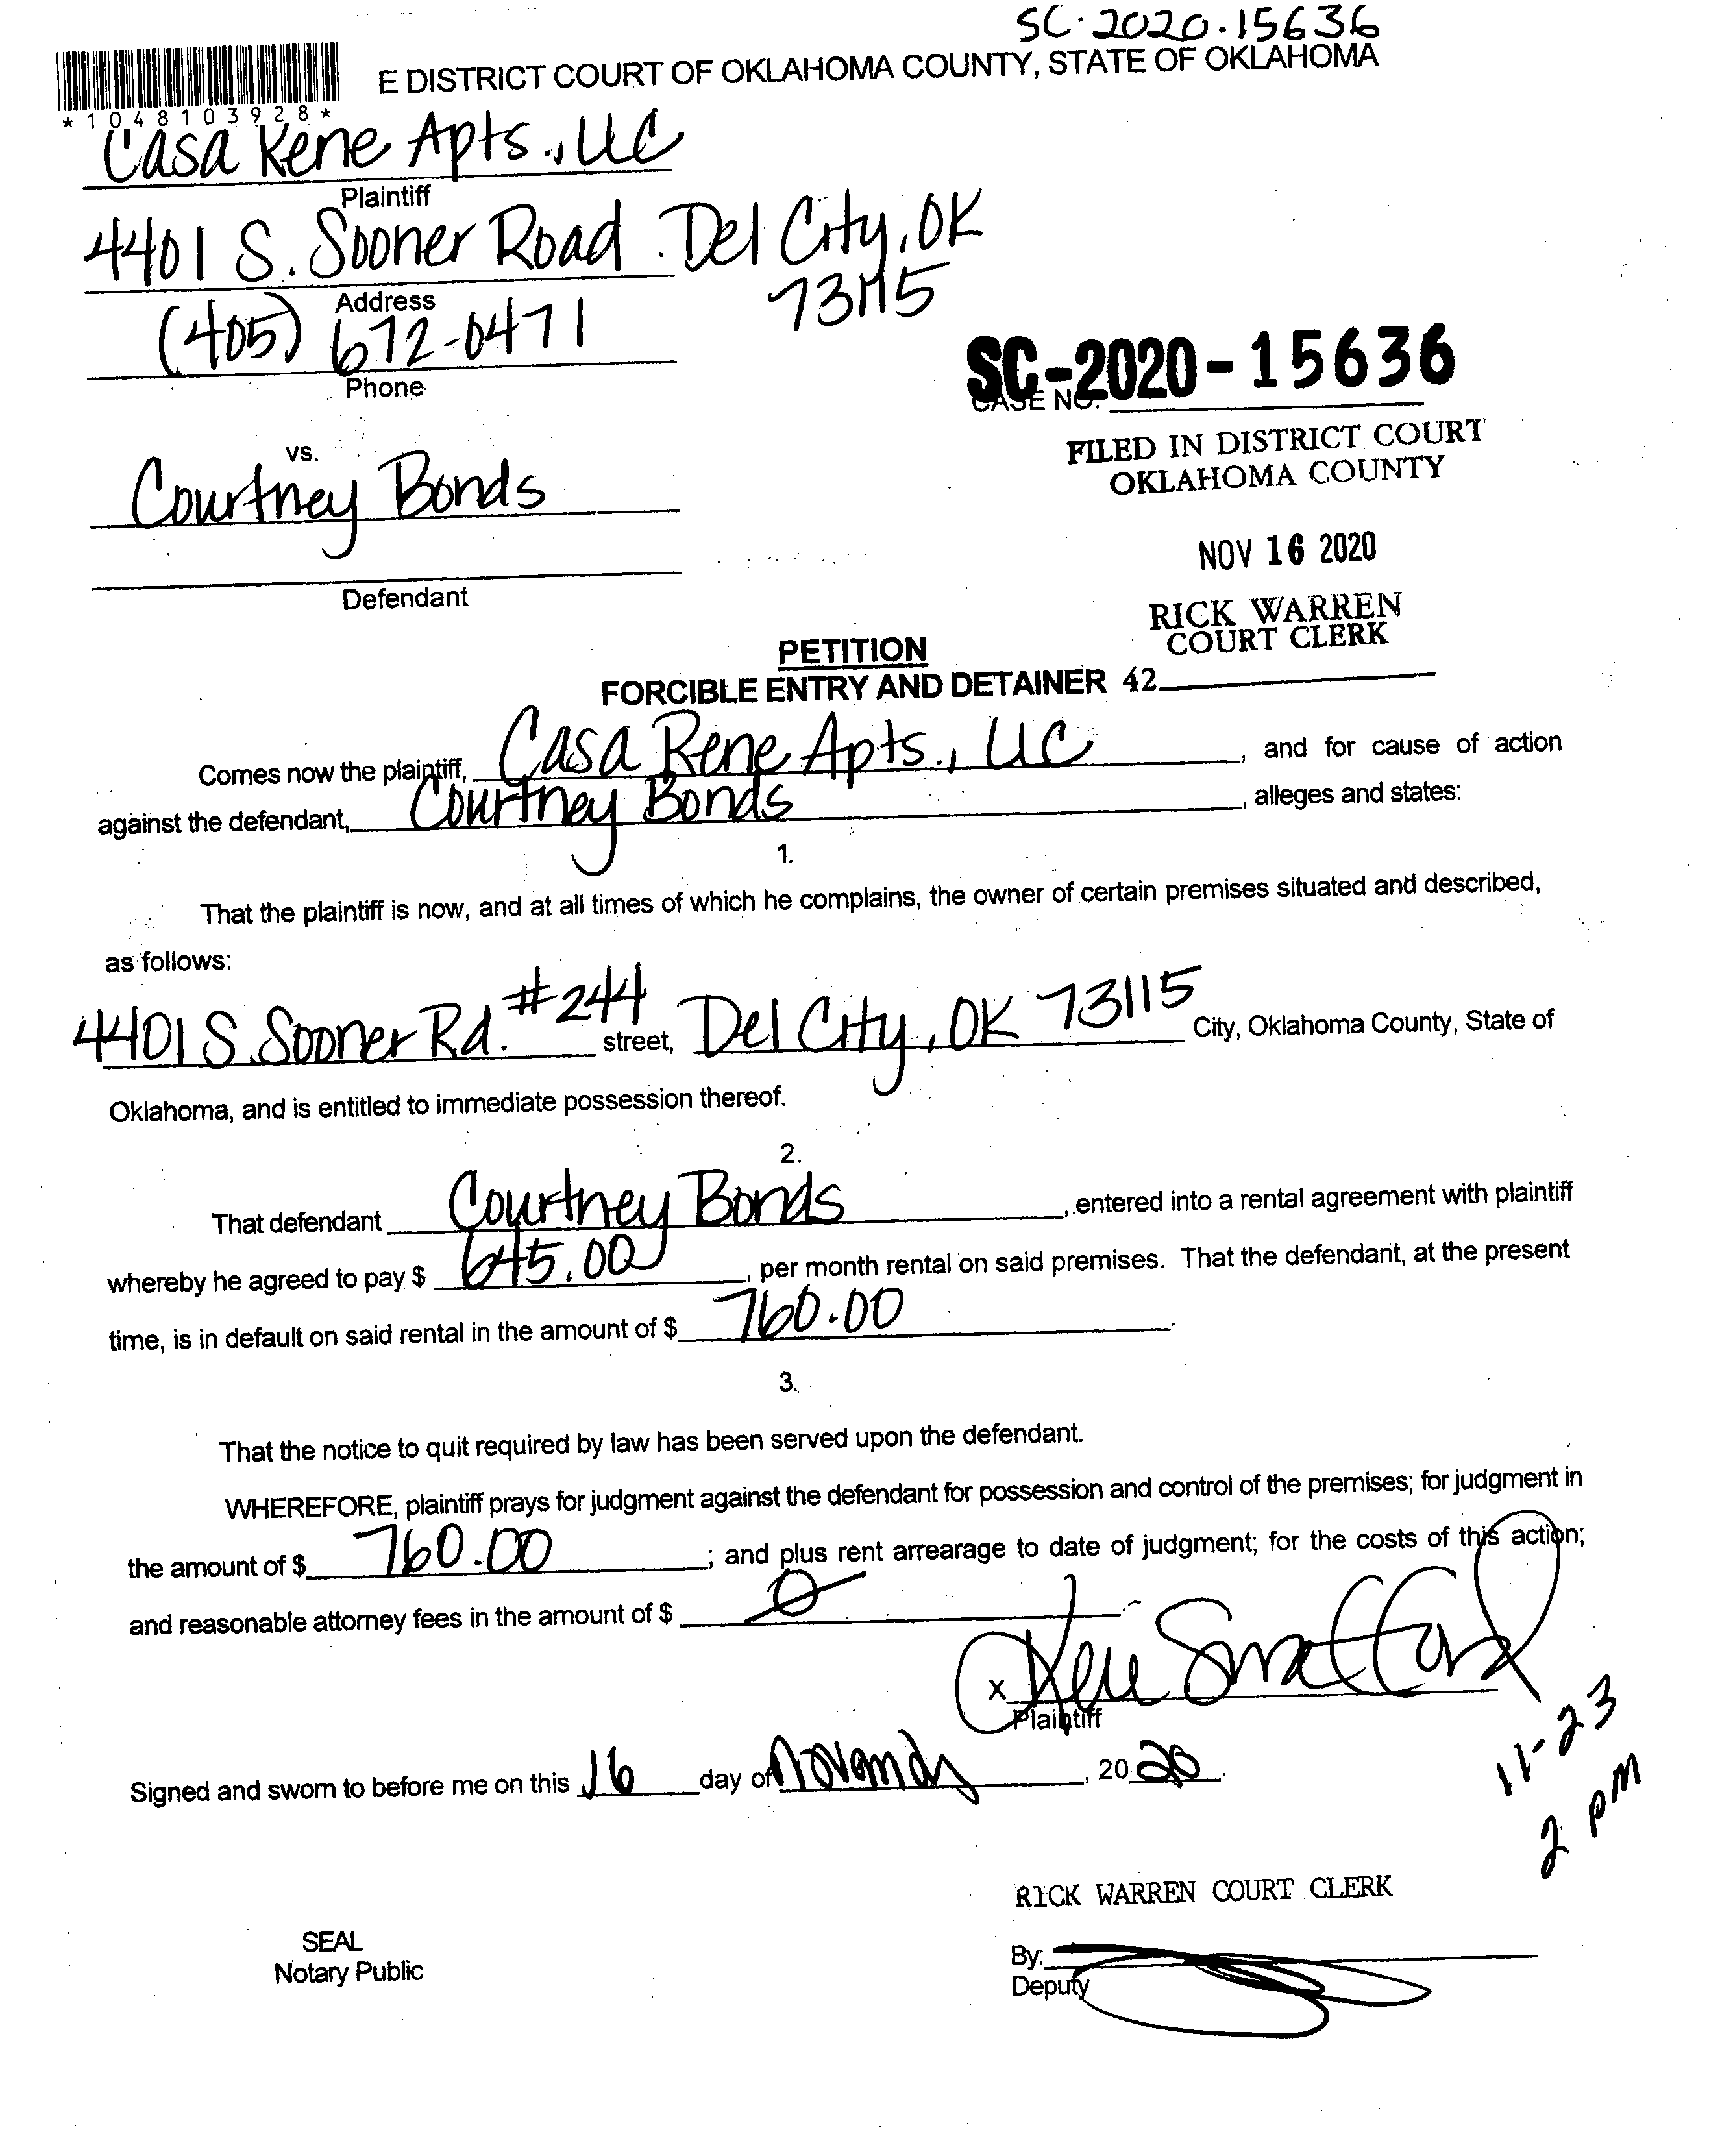 SC-2020-15636
E DISTRICT COURT OF OKLAHOMA COUNTY, STATE OF OKLAHOMA
*1048103928*
Casa Rene Apts., LLC
Plaintiff
4401 S. Sooner Road Del City, OK
73115
Address
(405) 672-0471
Phone
SC-2020-15636
CASE NO.
FILED IN DISTRICT COURT
OKLAHOMA COUNTY
vs.
Courtney Bonds
NOV 16 2020
Defendant
RICK WARREN
COURT CLERK
PETITION
FORCIBLE ENTRY AND DETAINER 42
Comes now the plaintiff, Casa Rene Apts., LLC, and for cause of action
against the defendant, Courtney Bonds, alleges and states:
1.
That the plaintiff is now, and at all times of which he complains, the owner of certain premises situated and described,
as follows:
4401 S. Sooner Rd. #244 street, Del City, OK 73115 City, Oklahoma County, State of
Oklahoma, and is entitled to immediate possession thereof.
2.
That defendant Courtney Bonds, entered into a rental agreement with plaintiff
whereby he agreed to pay $ 645.00, per month rental on said premises. That the defendant, at the present
time, is in default on said rental in the amount of $ 760.00.
3.
That the notice to quit required by law has been served upon the defendant.
WHEREFORE, plaintiff prays for judgment against the defendant for possession and control of the premises; for judgment in
the amount of $ 760.00; and plus rent arrearage to date of judgment; for the costs of this action;
and reasonable attorney fees in the amount of $ 0.
X
Plaintiff
11-23
2 pm
Signed and sworn to before me on this 16 day of, 2020.
RICK WARREN COURT CLERK
SEAL
Notary Public
By:
Deputy